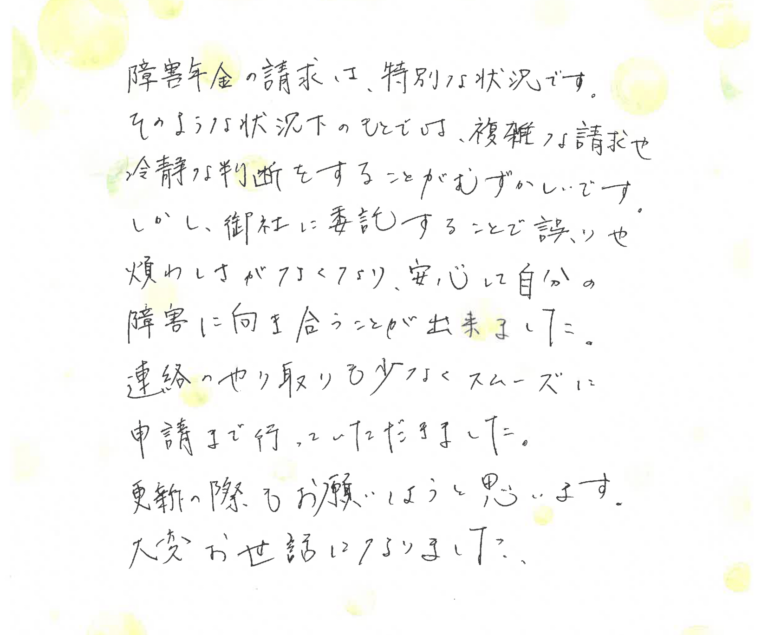 障害年金の請求は、特別な状況です。
そのような状況下のもとでは、複雑な請求や
冷静な判断をすることがむずかしいです。
しかし、御社に委託することで誤りや
煩わしさがなくなり、安心して自分の
障害に向き合うことが出来ました。
連絡のやり取りも少なくスムーズに
申請まで行っていただきました。
更新の際もお願いしようと思います。
大変お世話になりました。